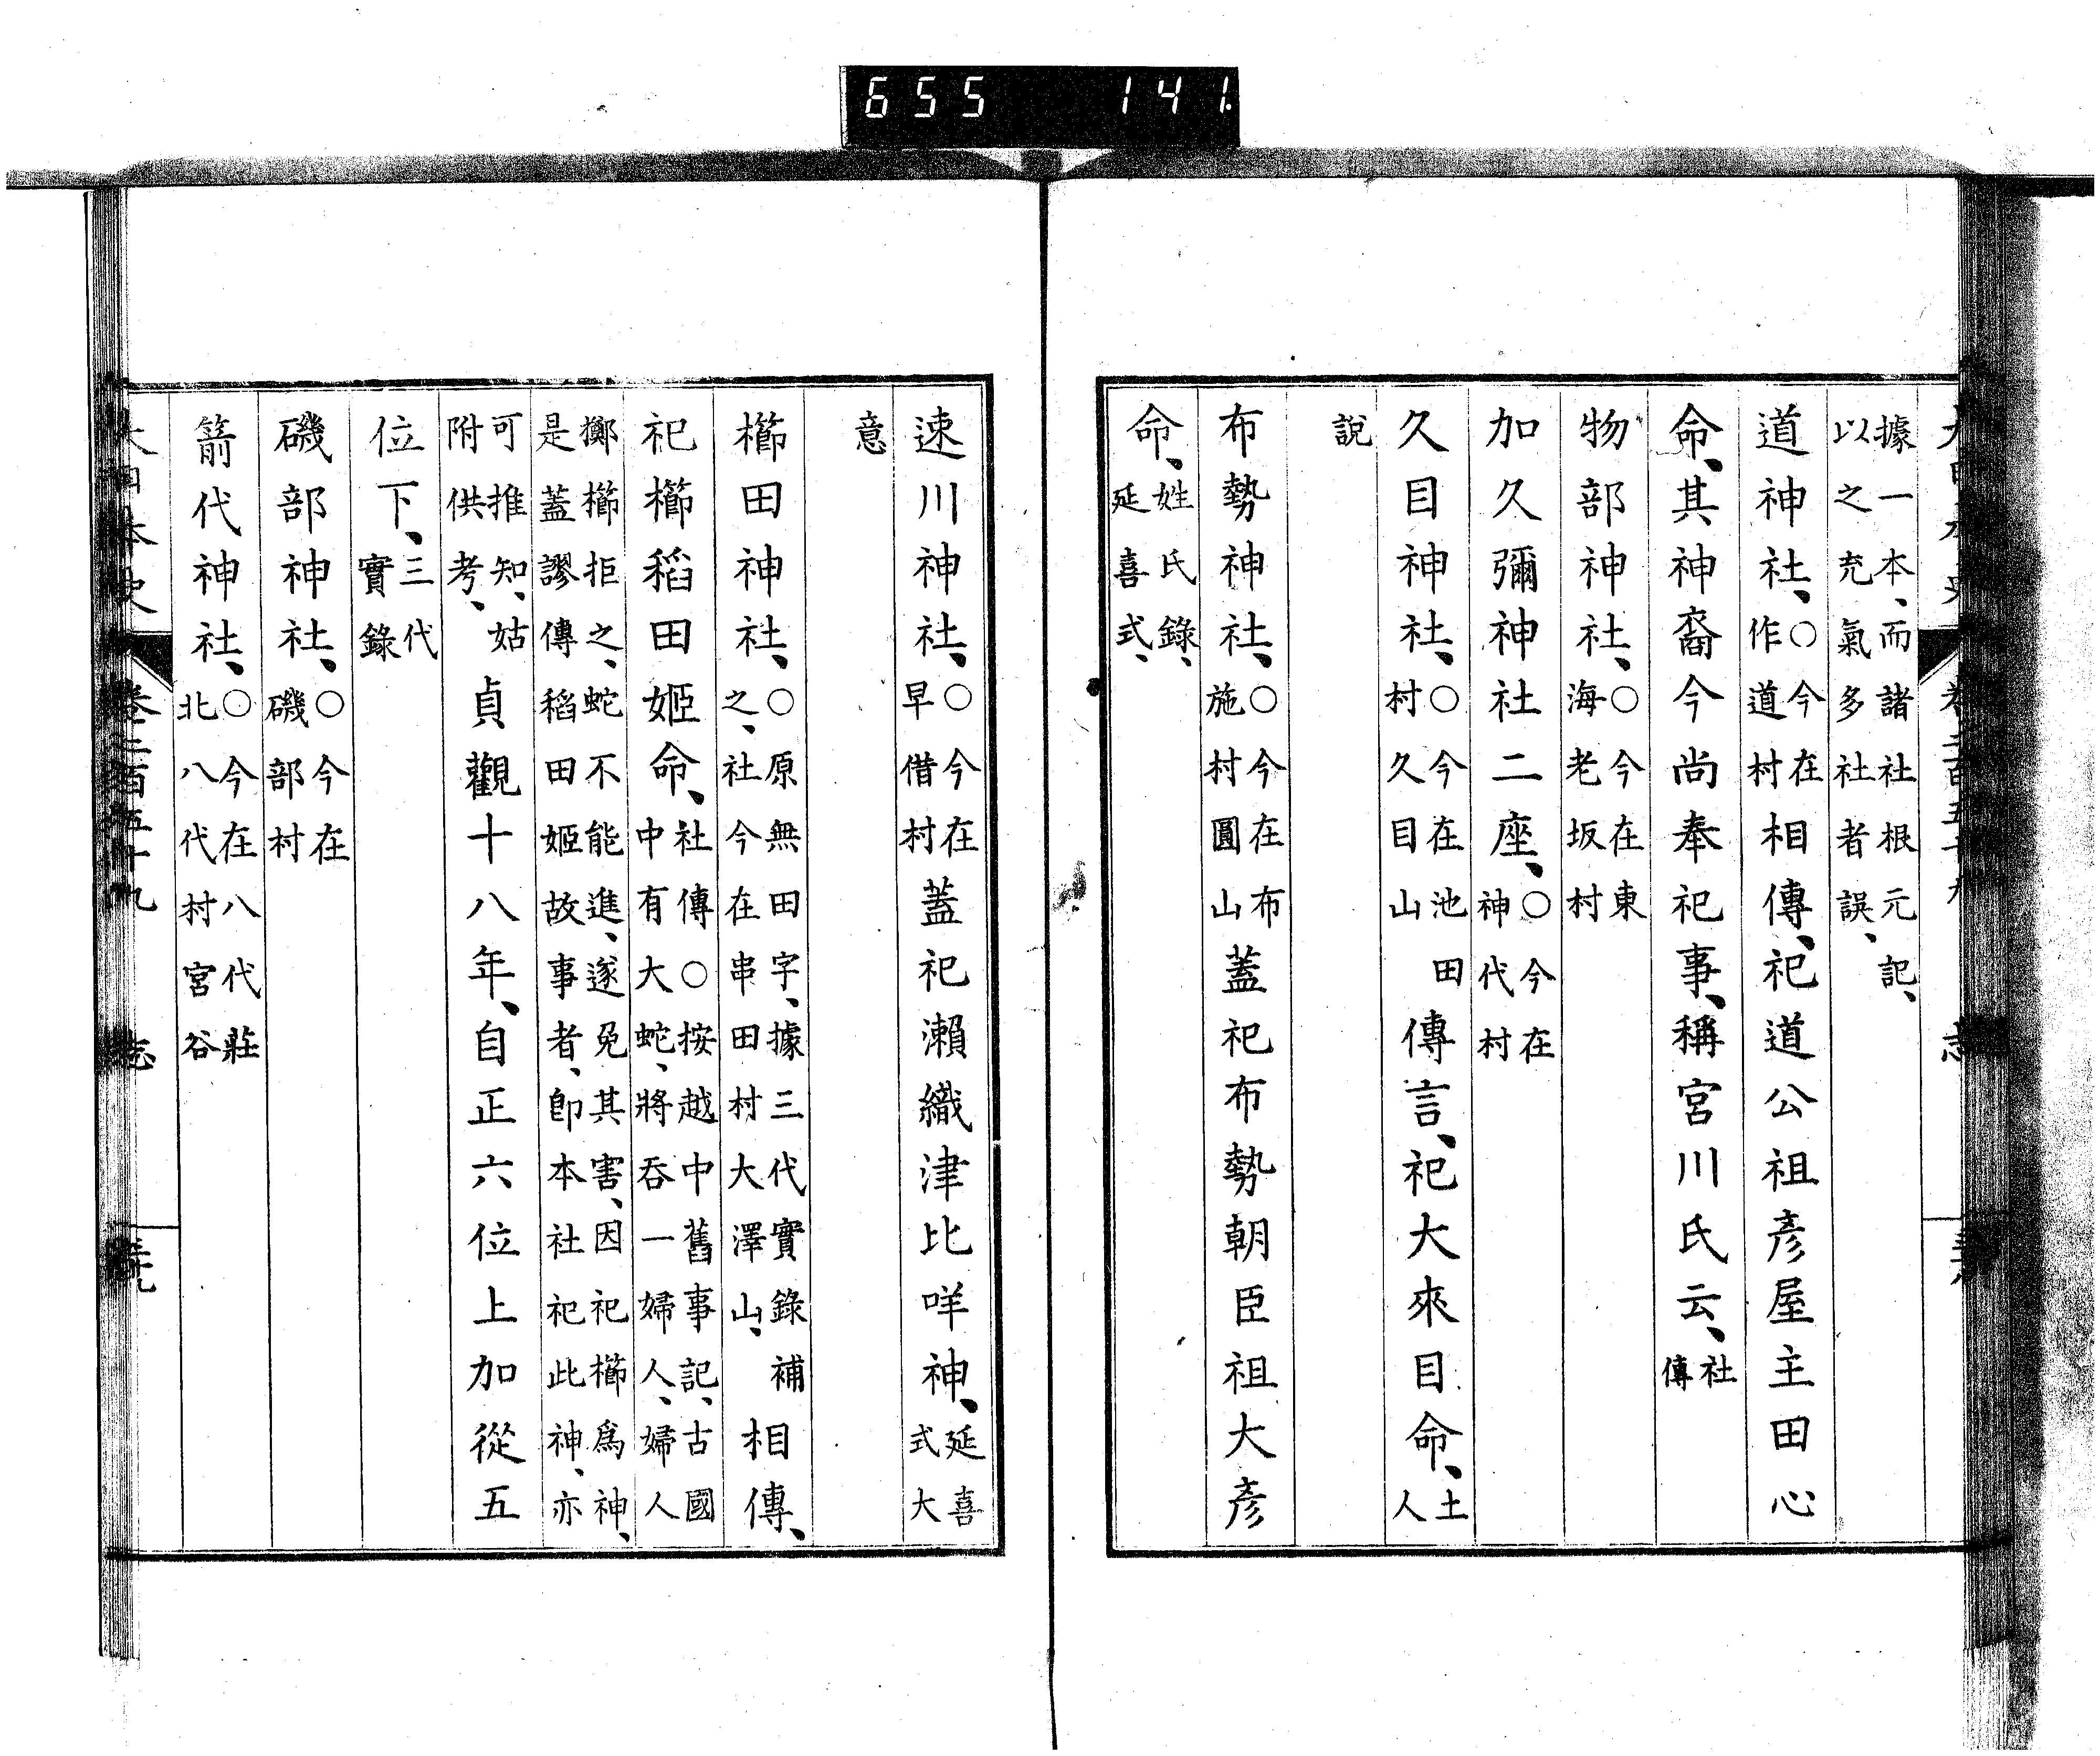 655 141
據一本、而諸社根元記、
以之充氣多社者誤、
道神社、○今在作道村相傳、祀道公祖彥屋主田心
命、其神裔今尚奉祀事、稱宮川氏云、社傳
物部神社、○今在東海老坂村
加久彌神社二座、○今在神代村
久目神社、○今在池田村久目山傳言、祀大來目命、土人
說
布勢神社、○今在布施村圓山蓋祀布勢朝臣祖大彥
命、姓氏錄、延喜式、
速川神社、○今在早借村蓋祀瀨織津比咩神、延喜式大
意
櫛田神社、○原無田字、據三代實錄補之、社今在串田村大澤山、相傳、
祀櫛稻田姬命、社傳○按越中舊事記、古國中有大蛇、將吞一婦人、婦人
擲櫛拒之、蛇不能進、遂免其害、因祀櫛爲神、
是蓋謬傳稻田姬故事者、卽本社祀此神、亦
可推知、姑附供考、貞觀十八年、自正六位上加從五
位下、三代實錄
磯部神社、○今在磯部村
箭代神社、○今在八代莊北八代村宮谷
大日本史 卷二百五十九 志